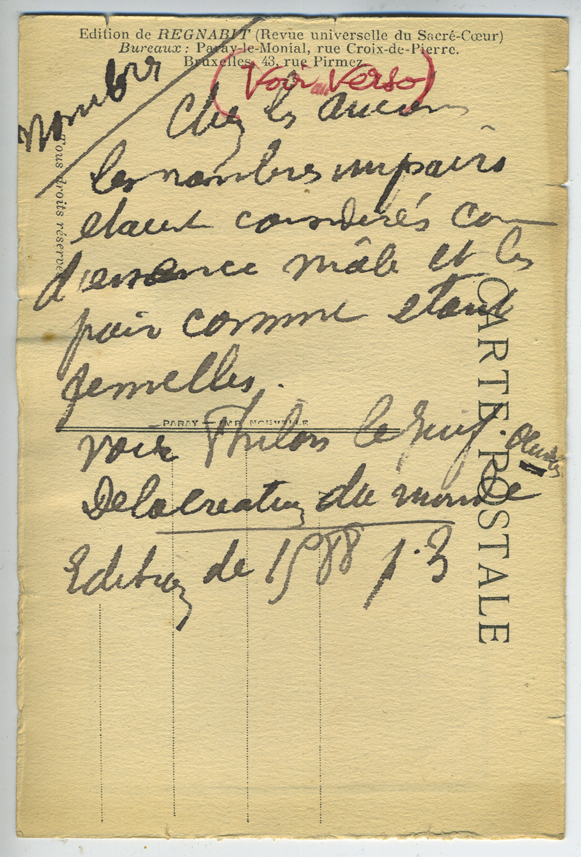 Edition de REGNABIT (Revue universelle du Sacré-Cœur)
Bureaux : Paray-le-Monial, rue Croix-de-Pierre.
Bruxelles, 43, rue Pirmez
(Voir au Verso)
Nombre
Tous droits réservés
Chez les anciens
les nombres impairs
etaient considérés com
d'essence mâle et les
pair comme etant
femelles.
PARAY — IMP. NOUVELLE
voir Philon le Juif.
De la creation du monde
Edition de 1588 p. 3
CARTE POSTALE